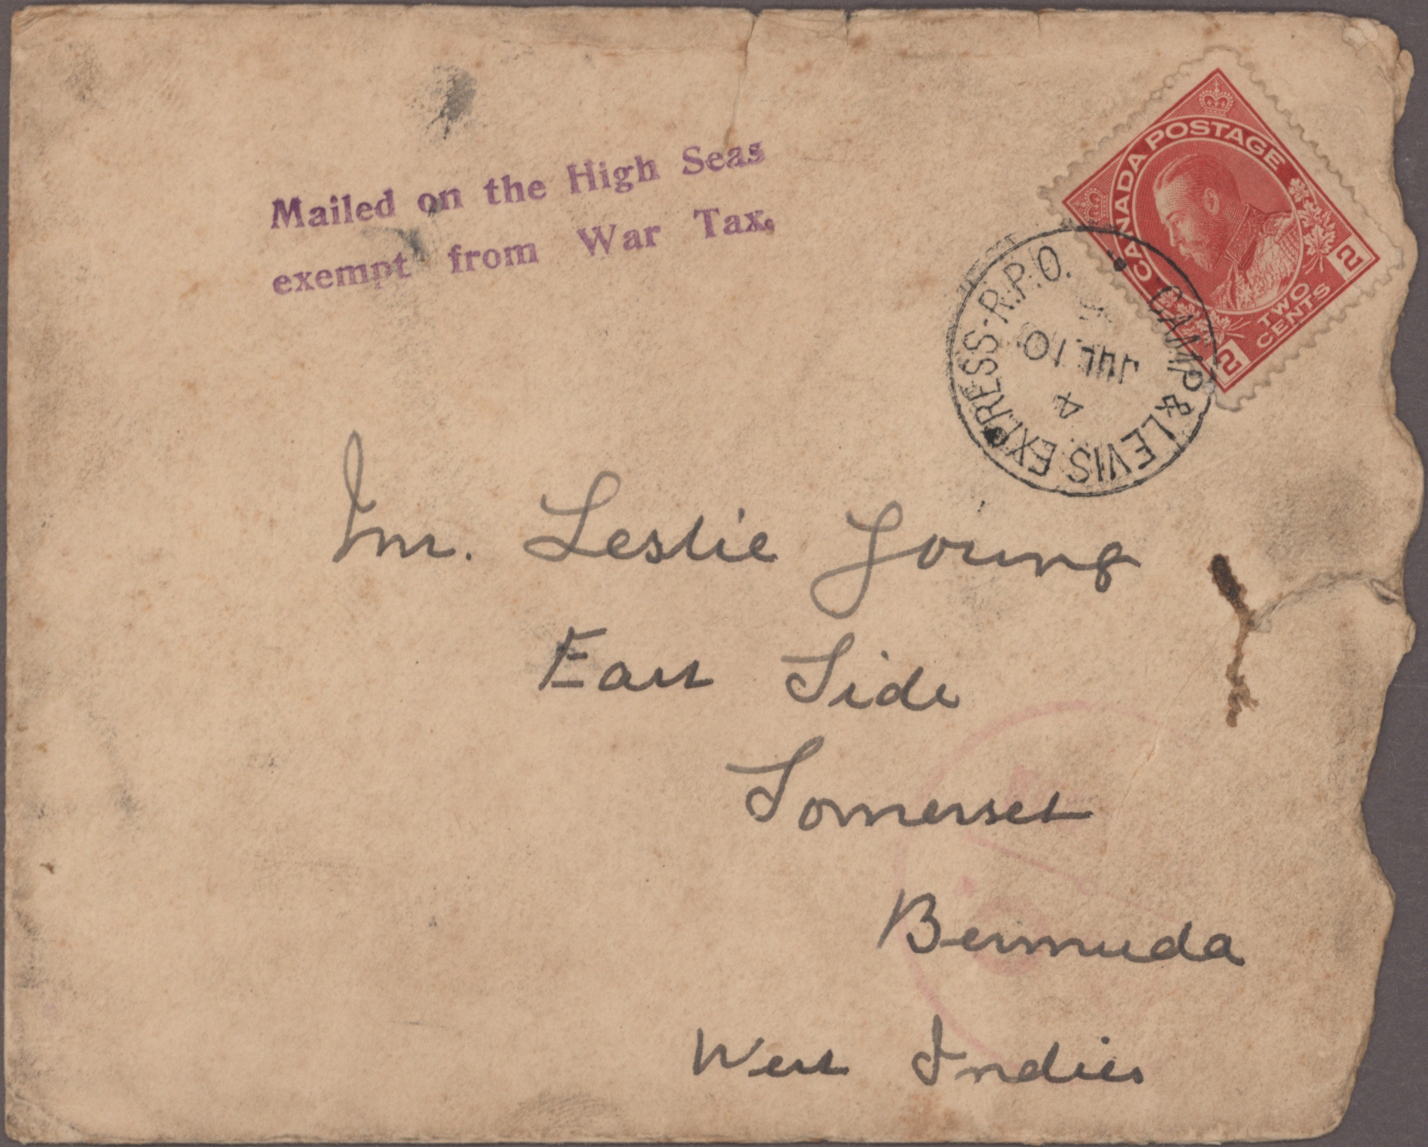 Mailed on the High Seas
exempt from War Tax.
CANADA POSTAGE
2 TWO CENTS 2
CAMP & LEVIS EXPRESS-R.P.O.
4
JUL 10
Mr. Leslie Young
East Side
Somerset
Bermuda
West Indies